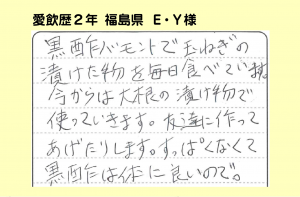 愛飲歴２年 福島県 E・Y様
黒酢バモントで玉ねぎの
漬けた物を毎日食べています。
今からは大根の漬け物で
使っていきます。友達に作って
あげたりします。すっぱくなくて
黒酢は体に良いので。